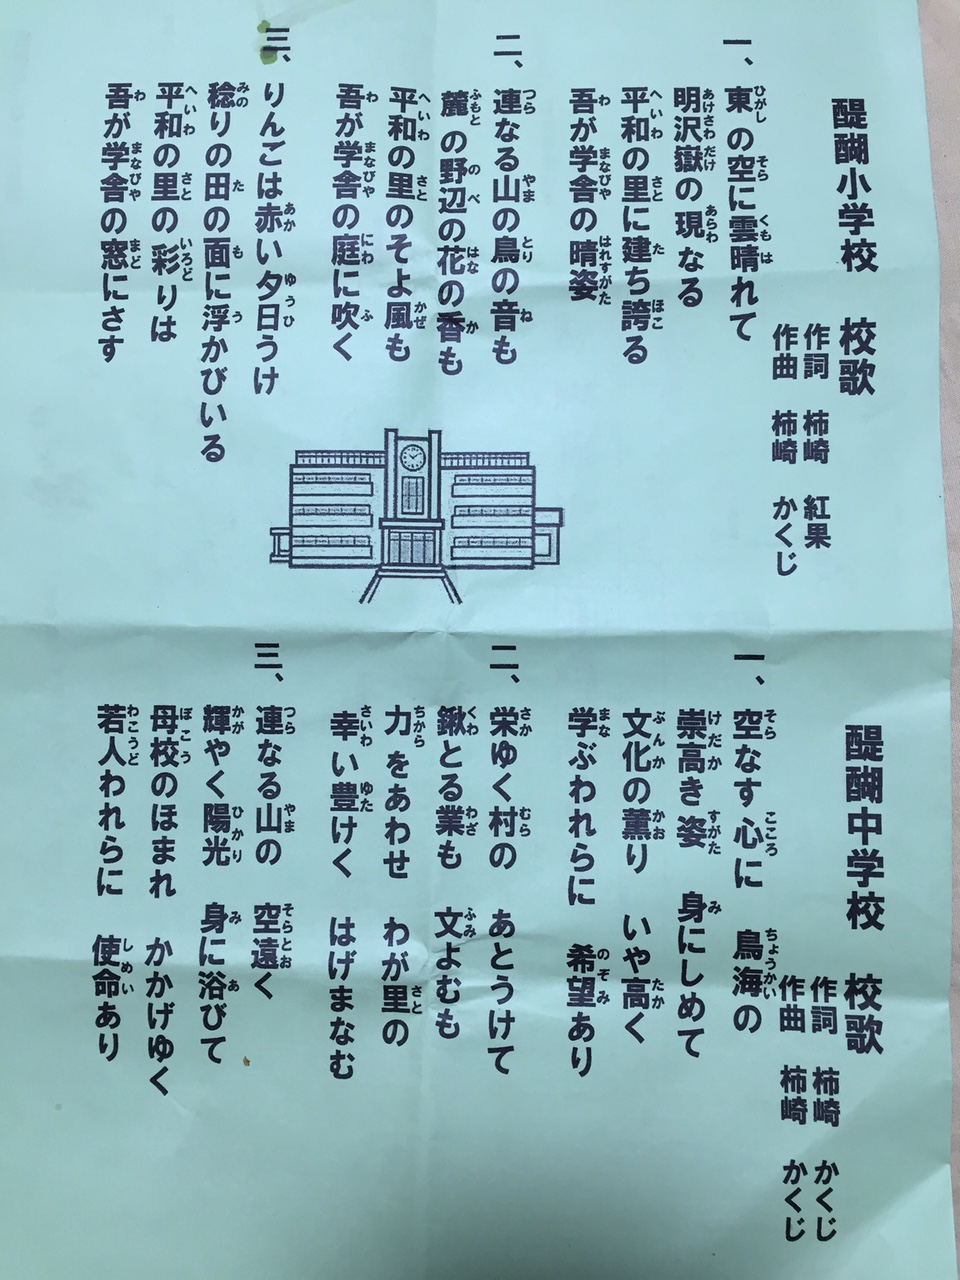 醍醐小学校 校歌
作詞 柿崎 紅果
作曲 柿崎 かくじ
一、
東の空に雲晴れて
明沢嶽の現なる
平和の里に建ち誇る
吾が学舎の晴姿
二、
連なる山の鳥の音も
麓の野辺の花の香も
平和の里のそよ風も
吾が学舎の庭に吹く
三、
りんごは赤い夕日うけ
稔りの田の面に浮かびいる
平和の里の彩りは
吾が学舎の窓にさす
醍醐中学校 校歌
作詞 柿崎 かくじ
作曲 柿崎 かくじ
一、
空なす心に 鳥海の
崇高き姿 身にしめて
文化の薫り いや高く
学ぶわれらに 希望あり
二、
栄ゆく村の あとうけて
鍬とる業も 文よむも
力をあわせ わが里の
幸い豊けく はげまなむ
三、
連なる山の 空遠く
輝やく陽光 身に浴びて
母校のほまれ かかげゆく
若人われらに 使命あり